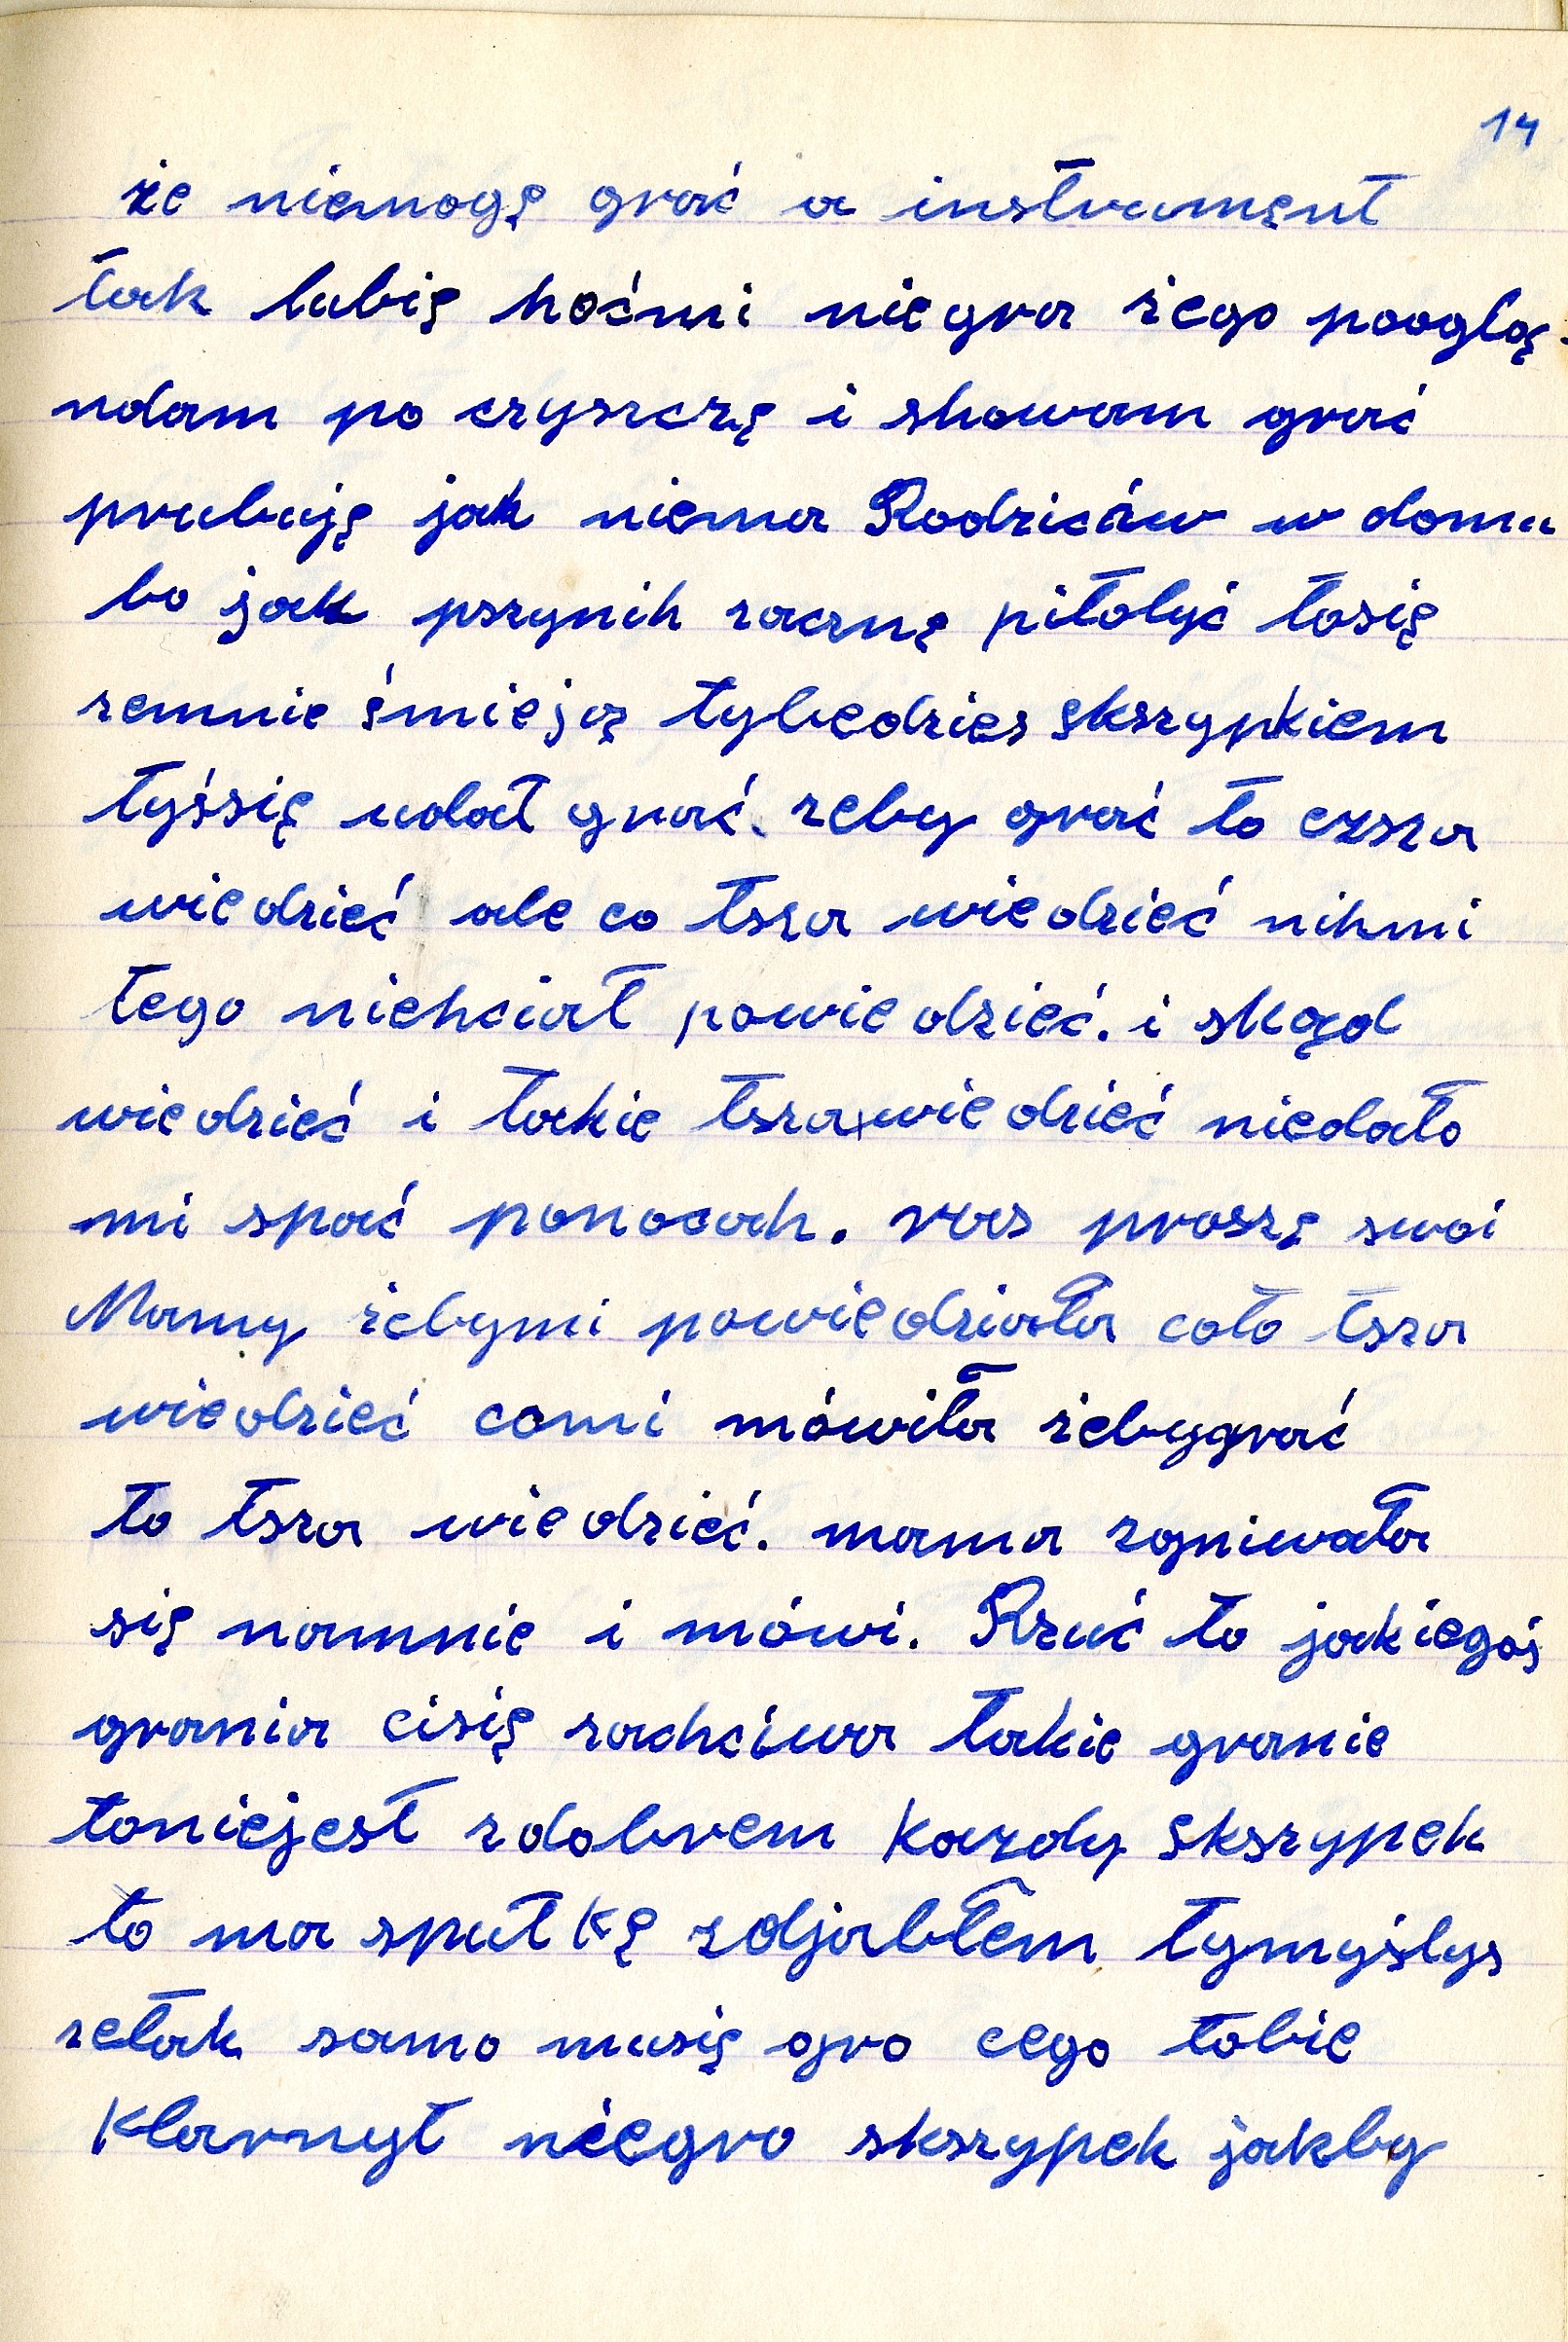 14
że niemogę grać a instrumęnt
tak lubię hoćmi niegra żego pooglę-
ndam po czyszczę i showam grać
prubuję jak niema Rodziców w domu
bo jak pszynih zacznę pitolyć tosię
zemnie śmieją tybedzies skszypkiem
tyśsię udał grać. zeby grać to czsza
wiedzieć ale co tsza wiedzieć nihmi
tego niehciał powiedzieć. i skąd
wiedzieć i takie tsza wiedzieć niedało
mi spać ponocach. ras proszę swoi
Mamy żebymi powiedziała coto tsza
wiedzieć comi mówiła żebygrać
to tsza wiedzieć. mama zgniwała
się namnie i mówi. Rzuć to jakiegoś
grania cisię zachciwa takie granie
toniejest zdobrem każdy skszypek
to ma sputkę zdjabłem tymyślys
zetak samo musię gro cego tobie
Klarnyt niegro skszypek jakby